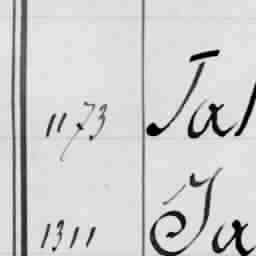 1173 Tal
1311 Ja